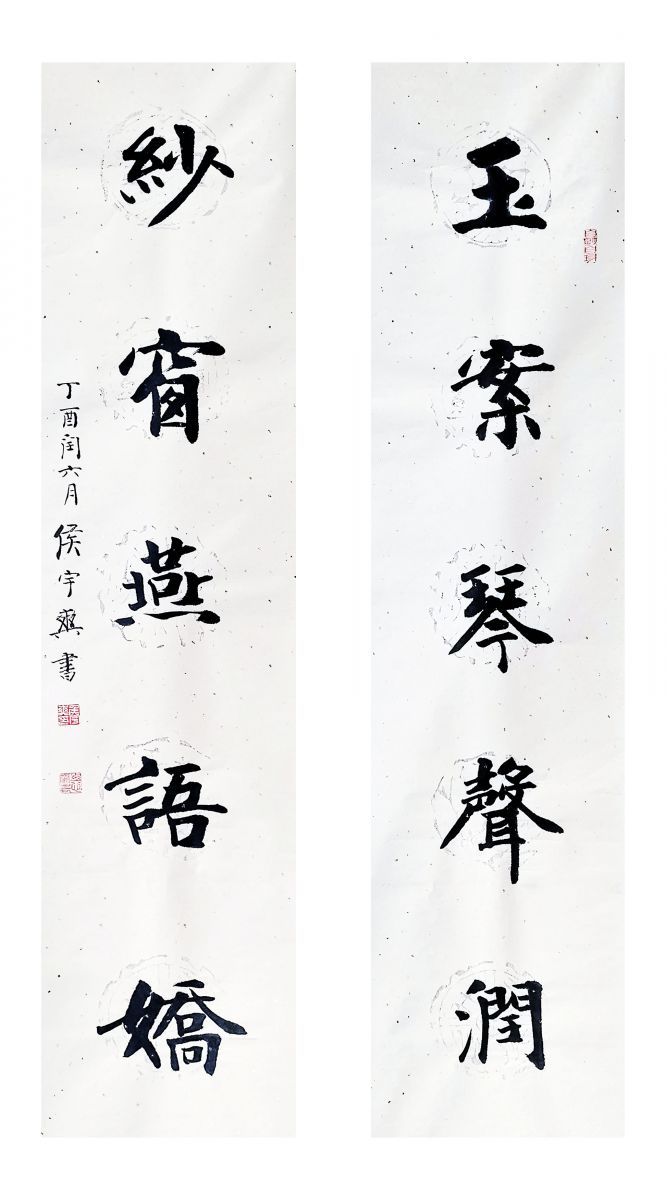 玉案琴聲潤
紗窗燕語嬌
丁酉闰六月 侯宇書